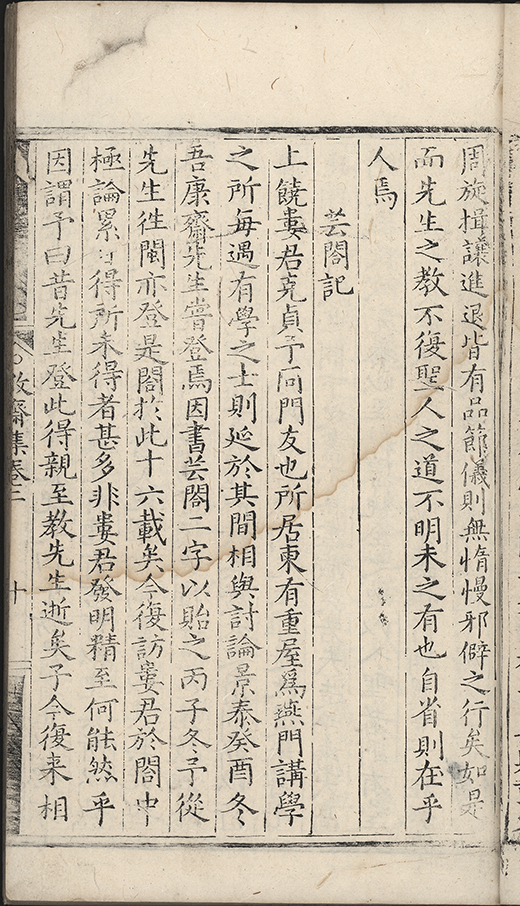 周旋揖讓進退皆有品節儀則無惰慢邪僻之行矣如是
而先生之教不復聖人之道不明未之有也自省則在乎
人焉
芸閣記
上饒婁君克貞予同門友也所居東有重屋爲燕門講學
之所每遇有學之士則延於其間相與討論景泰癸酉冬
吾康齋先生嘗登焉因書芸閣二字以貽之丙子冬予從
先生徃閩亦登是閣扵此十六載矣今復訪婁君於閣中
極論累日得所未得者甚多非婁君發明精至何能然乎
因謂予曰昔先生登此得親至教先生逝矣子今復来相
敬齋集卷二
十